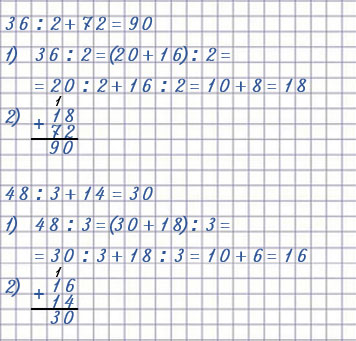 36 : 2 + 72 = 90
1) 36 : 2 = (20 + 16) : 2 =
= 20 : 2 + 16 : 2 = 10 + 8 = 18
1
2) + 18
72
90
48 : 3 + 14 = 30
1) 48 : 3 = (30 + 18) : 3 =
= 30 : 3 + 18 : 3 = 10 + 6 = 16
1
2) + 16
14
30